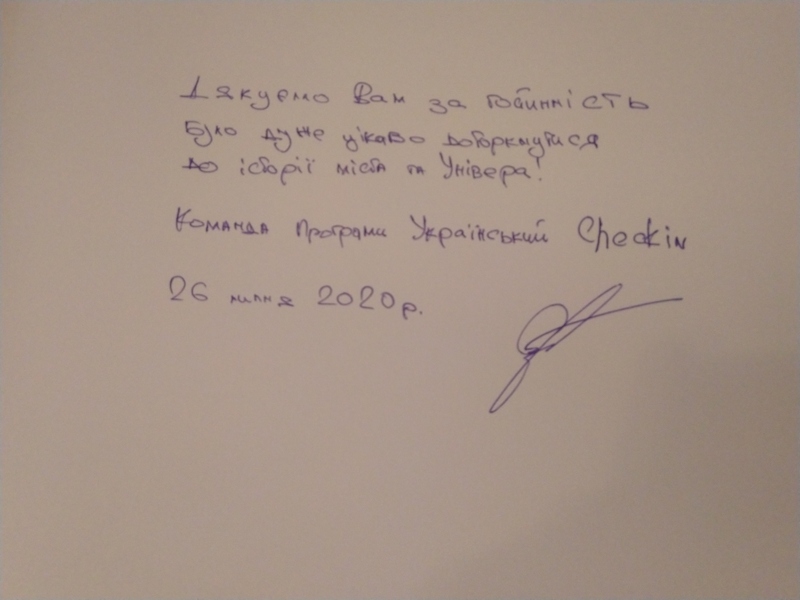 Дякуємо Вам за гостинність
Було дуже цікаво доторкнутися
до історії міста та Універа!
Команда програми Український Checkin
26 липня 2020р.